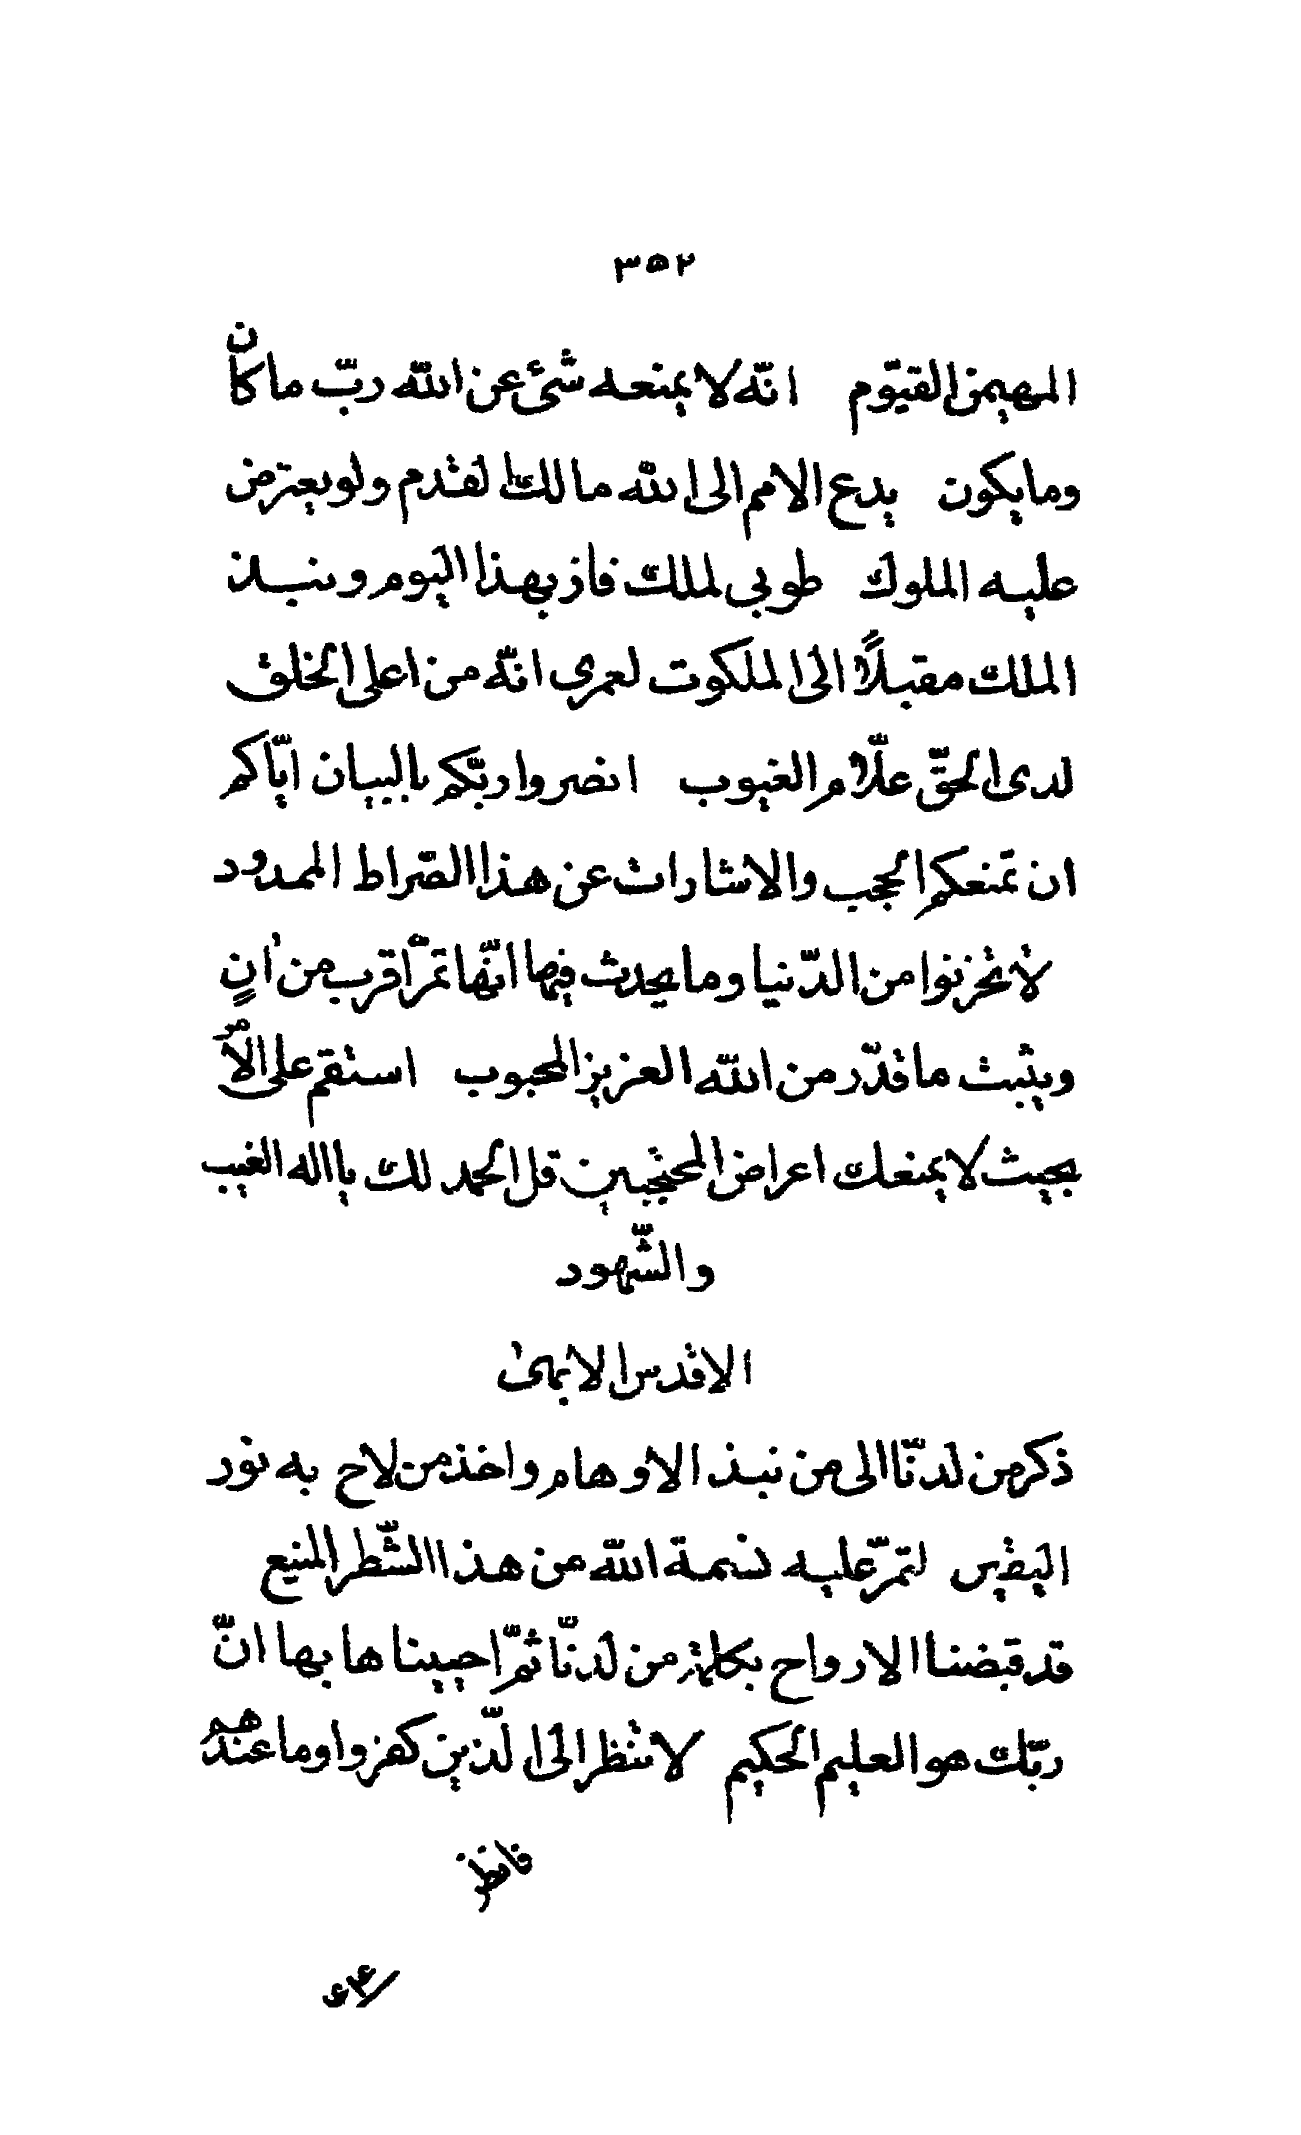 ٣٥٢
المهيمن القيّوم انّه لا يمنعه شئ عن الله ربّ ما كان
وما يكون يدع الامم الى الله مالك القدم ولو يعترض
عليه الملوك طوبى لملك فاز بهذا اليوم وينبذ
الملك مقبلاً الى الملكوت لعمرى انّه من اعلى الخلق
لدى الحقّ علّام الغيوب انصروا ربّكم بالبيان ايّاكم
ان تمنعكم الحجب والاشارات عن هذا الصّراط الممدود
لا تحزنوا من الدّنيا وما يحدث فيها انّها تمرّ اقرب من انٍ
ويثبت ما قدّر من الله العزيز المحبوب استقم على الامر
بحيث لا يمنعك اعراض المحتجبين قل الحمد لك يا اله الغيب
والشّهود
الاقدس الابهى
ذكر من لدنّا الى من نبذ الاوهام واخذ من لاح به نور
اليقين لتمرّ عليه نسمة الله من هذا الشّطر المنيع
قد قبضنا الارواح بكلمة من لدنّا ثمّ احيينا ها بها انّ
ربّك هو العليم الحكيم لا تنظر الى الّذين كفروا وما عندهم
فانظر